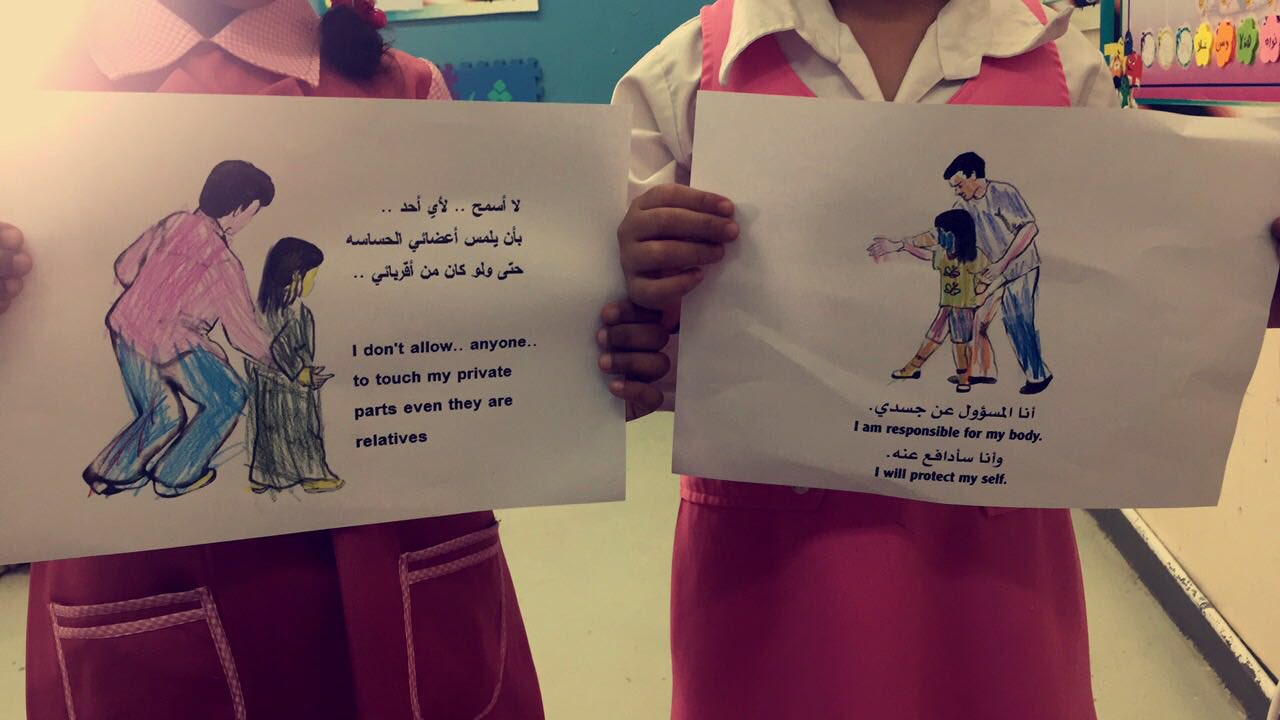 لا أسمح .. لأي أحد ..
بأن يلمس أعضائي الحساسه
حتّى ولو كان من أقربائي ..
I don't allow.. anyone..
to touch my private
parts even they are
relatives
أنا المسؤول عن جسدي.
I am responsible for my body.
وأنا سأدافع عنه.
I will protect my self.